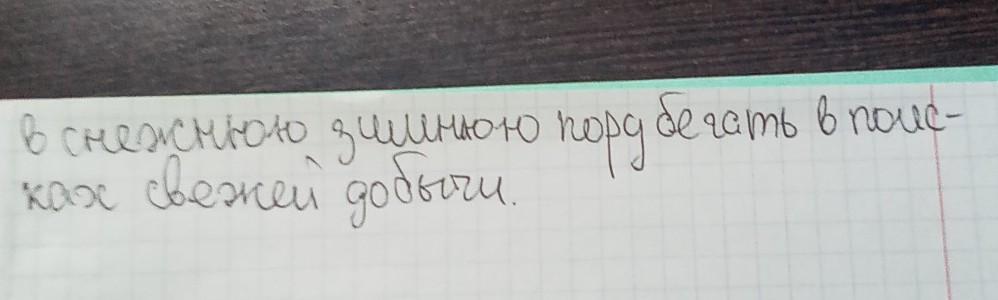 в снежнюю зимнюю пору бегать в поис-
ках свежей добычи.